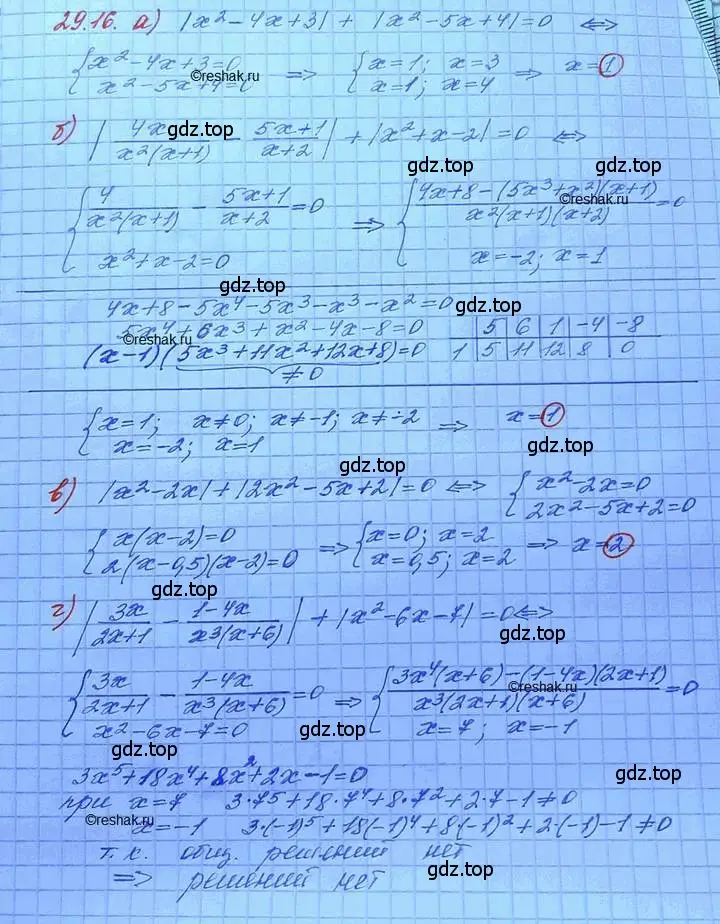 29.16. а) |x²-4x+3| + |x²-5x+4|=0 ⟺
{x²-4x+3=0 ⇒ {x=1; x=3 ⇒ x=1
x²-5x+4=0 x=1; x=4
©reshak.ru
б) |4x/x²(x+1) - 5x+1/x+2| + |x²+x-2|=0 ⟺
gdz.top
gdz.top
{4/x²(x+1) - 5x+1/x+2=0 ⇒ {4x+8-(5x³+x²)(x+1)/x²(x+1)(x+2)=0
©reshak.ru
x²+x-2=0 x=-2; x=1
gdz.top
4x+8-5x⁴-5x³-x³-x²=0
5x⁴+6x³+x²-4x-8=0 5 6 1 -4 -8
©reshak.ru
(x-1)(5x³+11x²+12x+8)=0 1 5 11 12 8 0
≠0
{x=1; x≠0; x≠-1; x≠-2 ⇒ x=1
x=-2; x=1
gdz.top
gdz.top
в) |x²-2x|+|2x²-5x+2|=0 ⟺ {x²-2x=0
2x²-5x+2=0
{x(x-2)=0 ⇒ {x=0; x=2 ⇒ x=2
2(x-0,5)(x-2)=0 x=0,5; x=2
gdz.top
г) |3x/2x+1 - 1-4x/x³(x+6)| + |x²-6x-7|=0 ⟺
gdz.top
{3x/2x+1 - 1-4x/x³(x+6)=0 ⇒ {3x⁴(x+6)-(1-4x)(2x+1)/x³(2x+1)(x+6)=0
©reshak.ru
x²-6x-7=0 x=7; x=-1
gdz.top
gdz.top
3x⁵+18x⁴+8x²+2x-1=0
gdz.top
при x=7 3·7⁵+18·7⁴+8·7²+2·7-1≠0
©reshak.ru
x=-1 3·(-1)⁵+18(-1)⁴+8(-1)²+2·(-1)-1≠0
т.к. общ. решений нет
⇒ решений нет
gdz.top